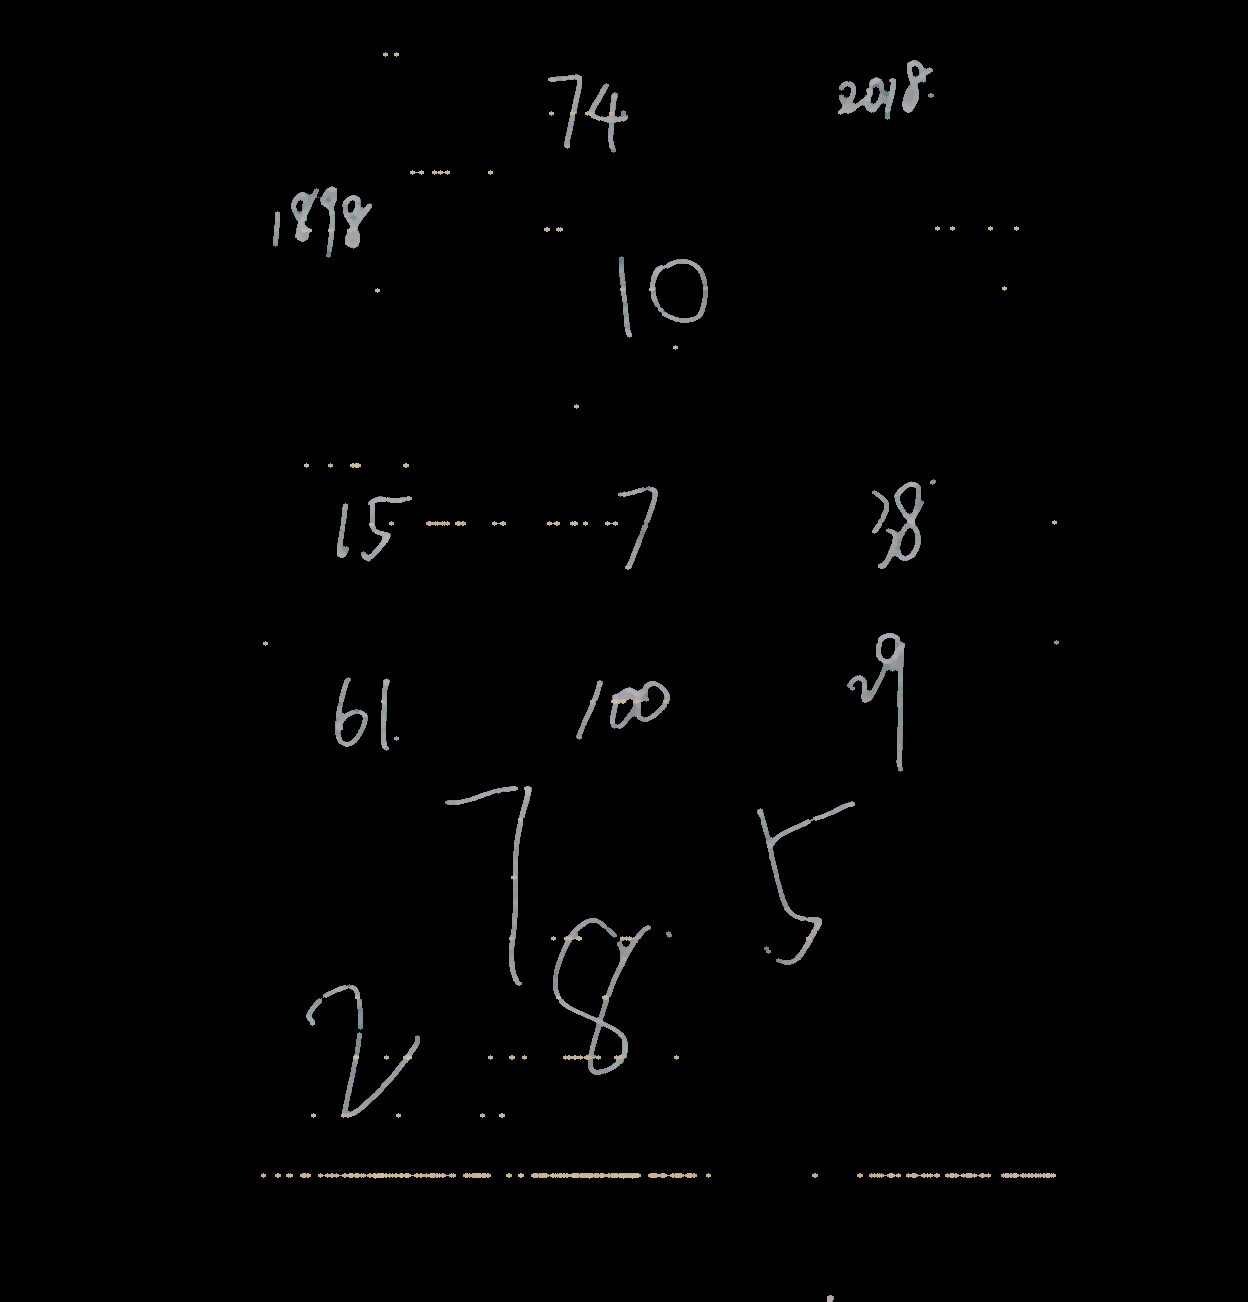 74 2018
1898
10
15 7 38
61 100 29
7 5
8
2